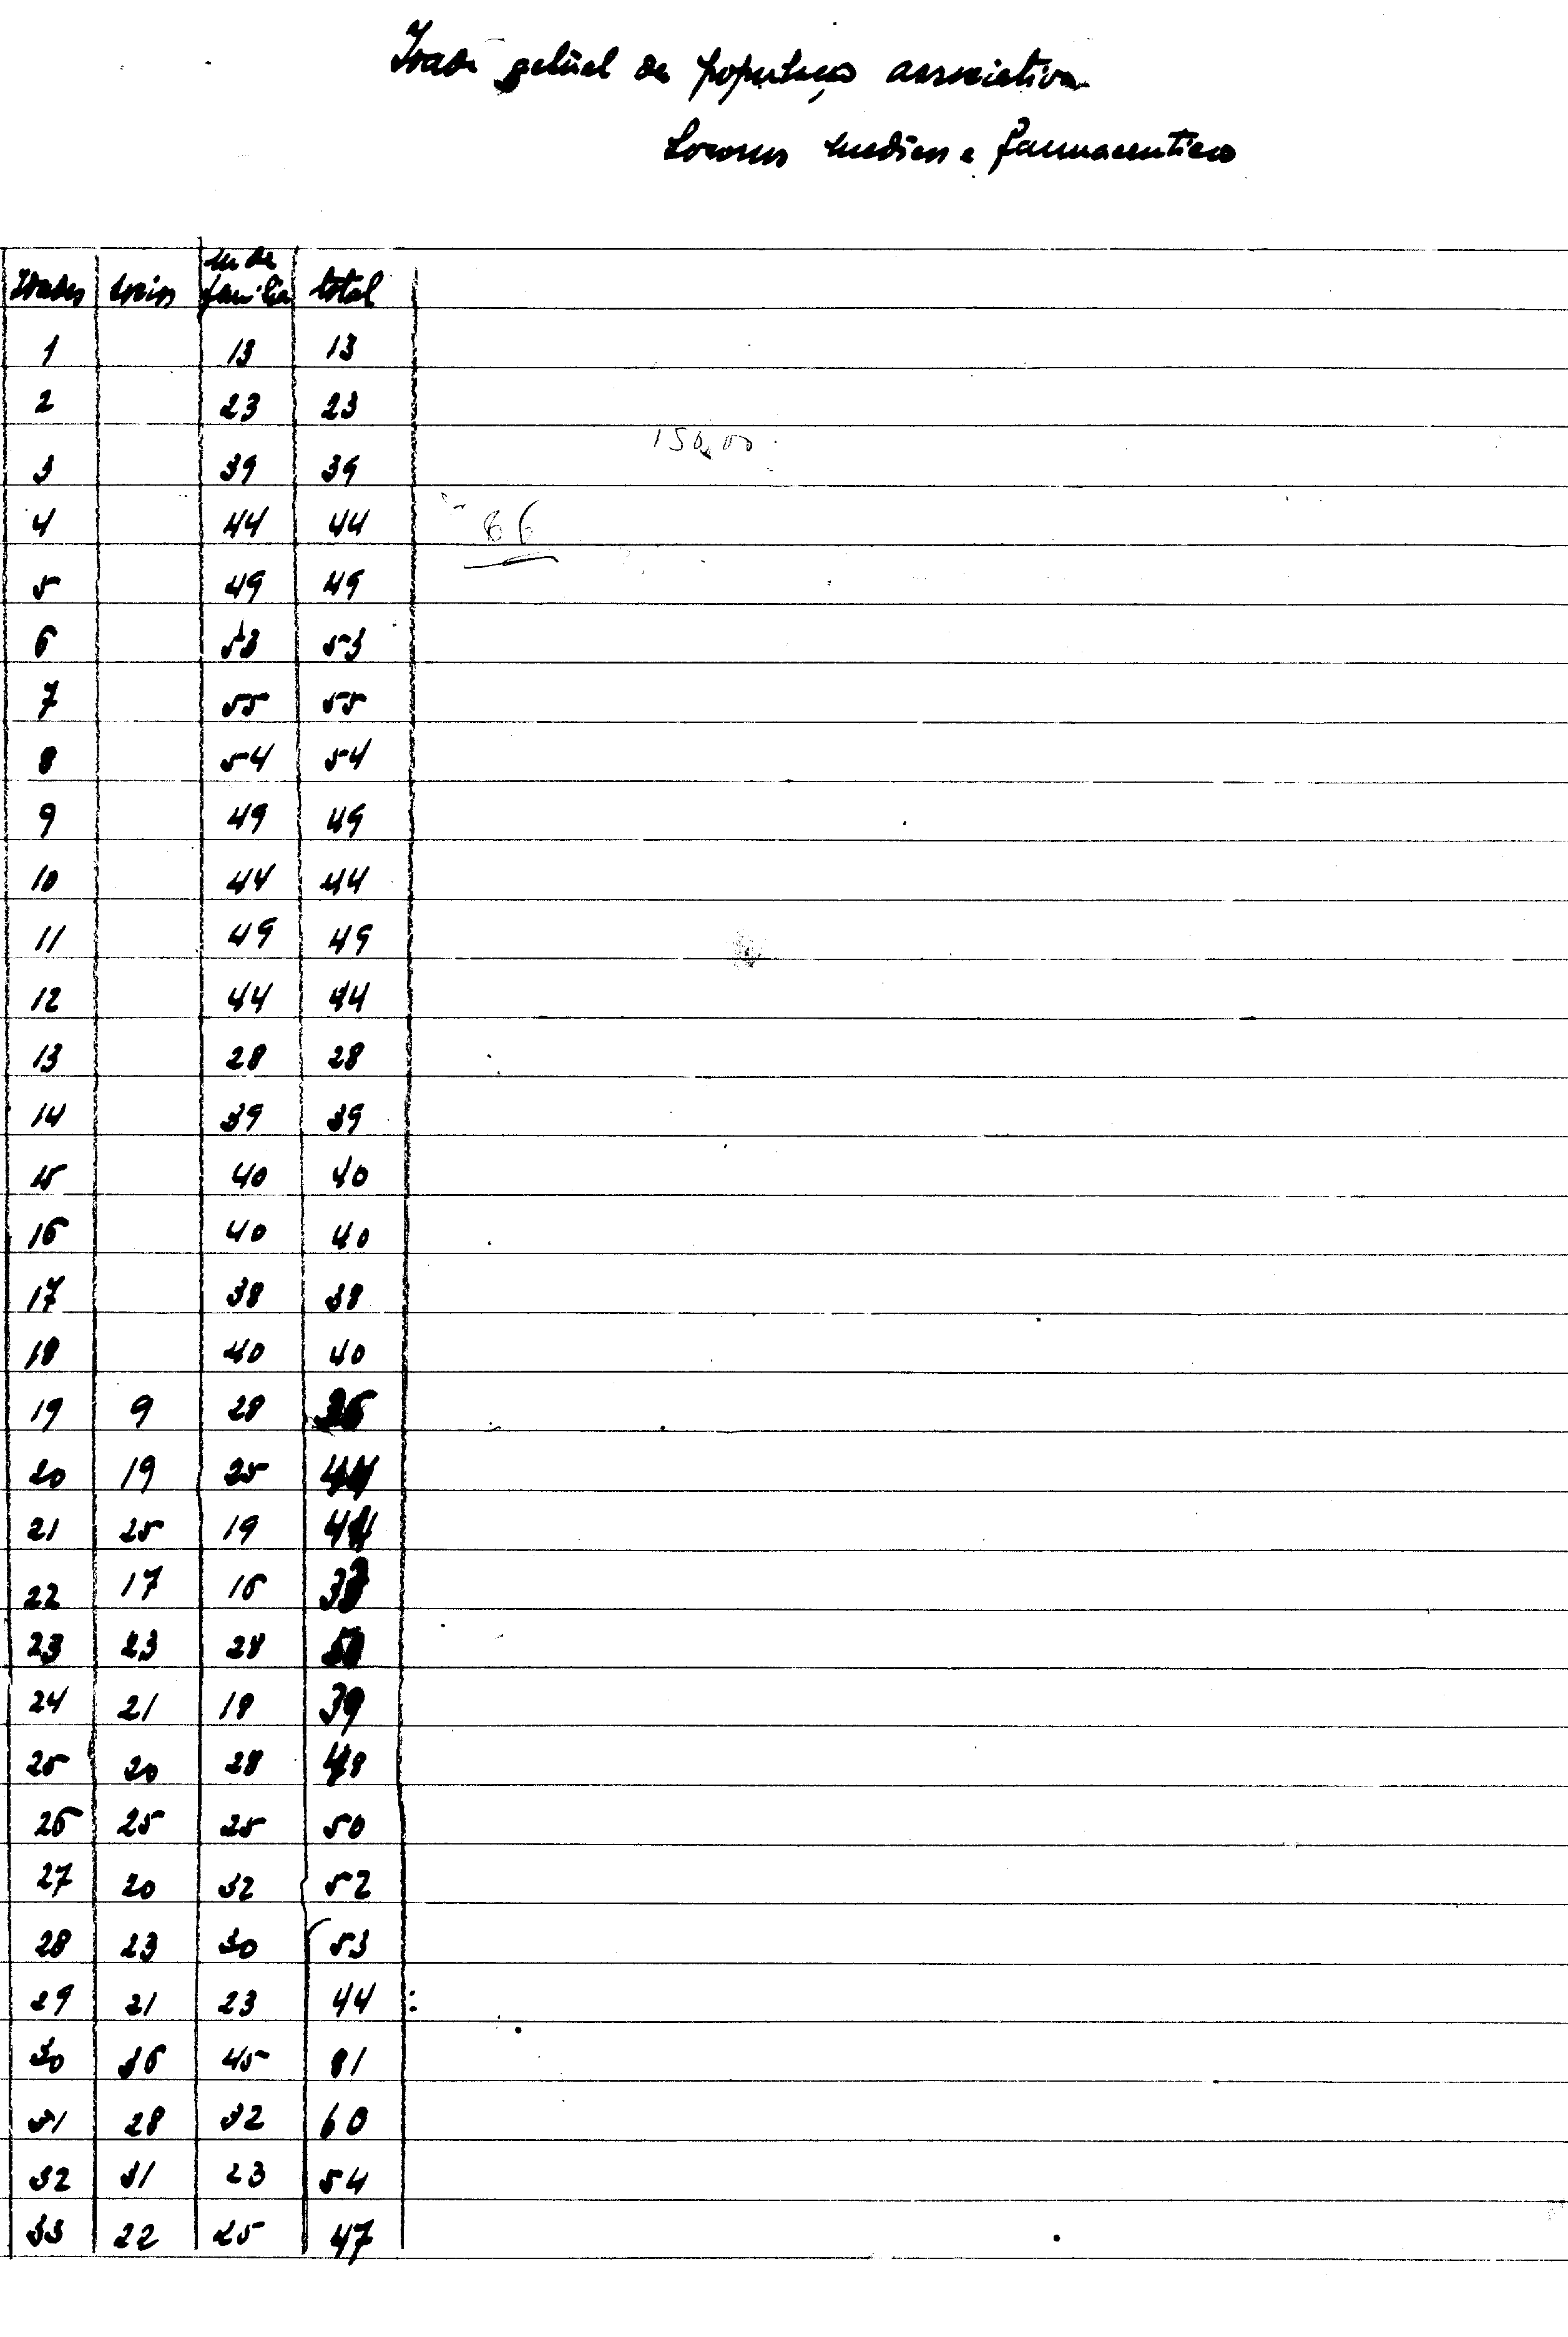 Idade actual da população associativa
Socorros medicos e farmaceuticos
Idades socios m de familia total
1 13 13
2 23 23
150,00
3 39 39
4 44 44 86
5 49 49
6 53 53
7 55 55
8 54 54
9 49 49
10 44 44
11 49 49
12 44 44
13 28 28
14 39 39
15 40 40
16 40 40
17 38 38
18 40 40
19 9 28
20 19 25 44
21 25 19 44
22 17 16 33
23 23 28
24 21 18 39
25 20 28 48
26 25 25 50
27 20 32 52
28 23 30 53
29 21 23 44
30 36 45 81
31 28 32 60
32 31 23 54
33 22 25 47